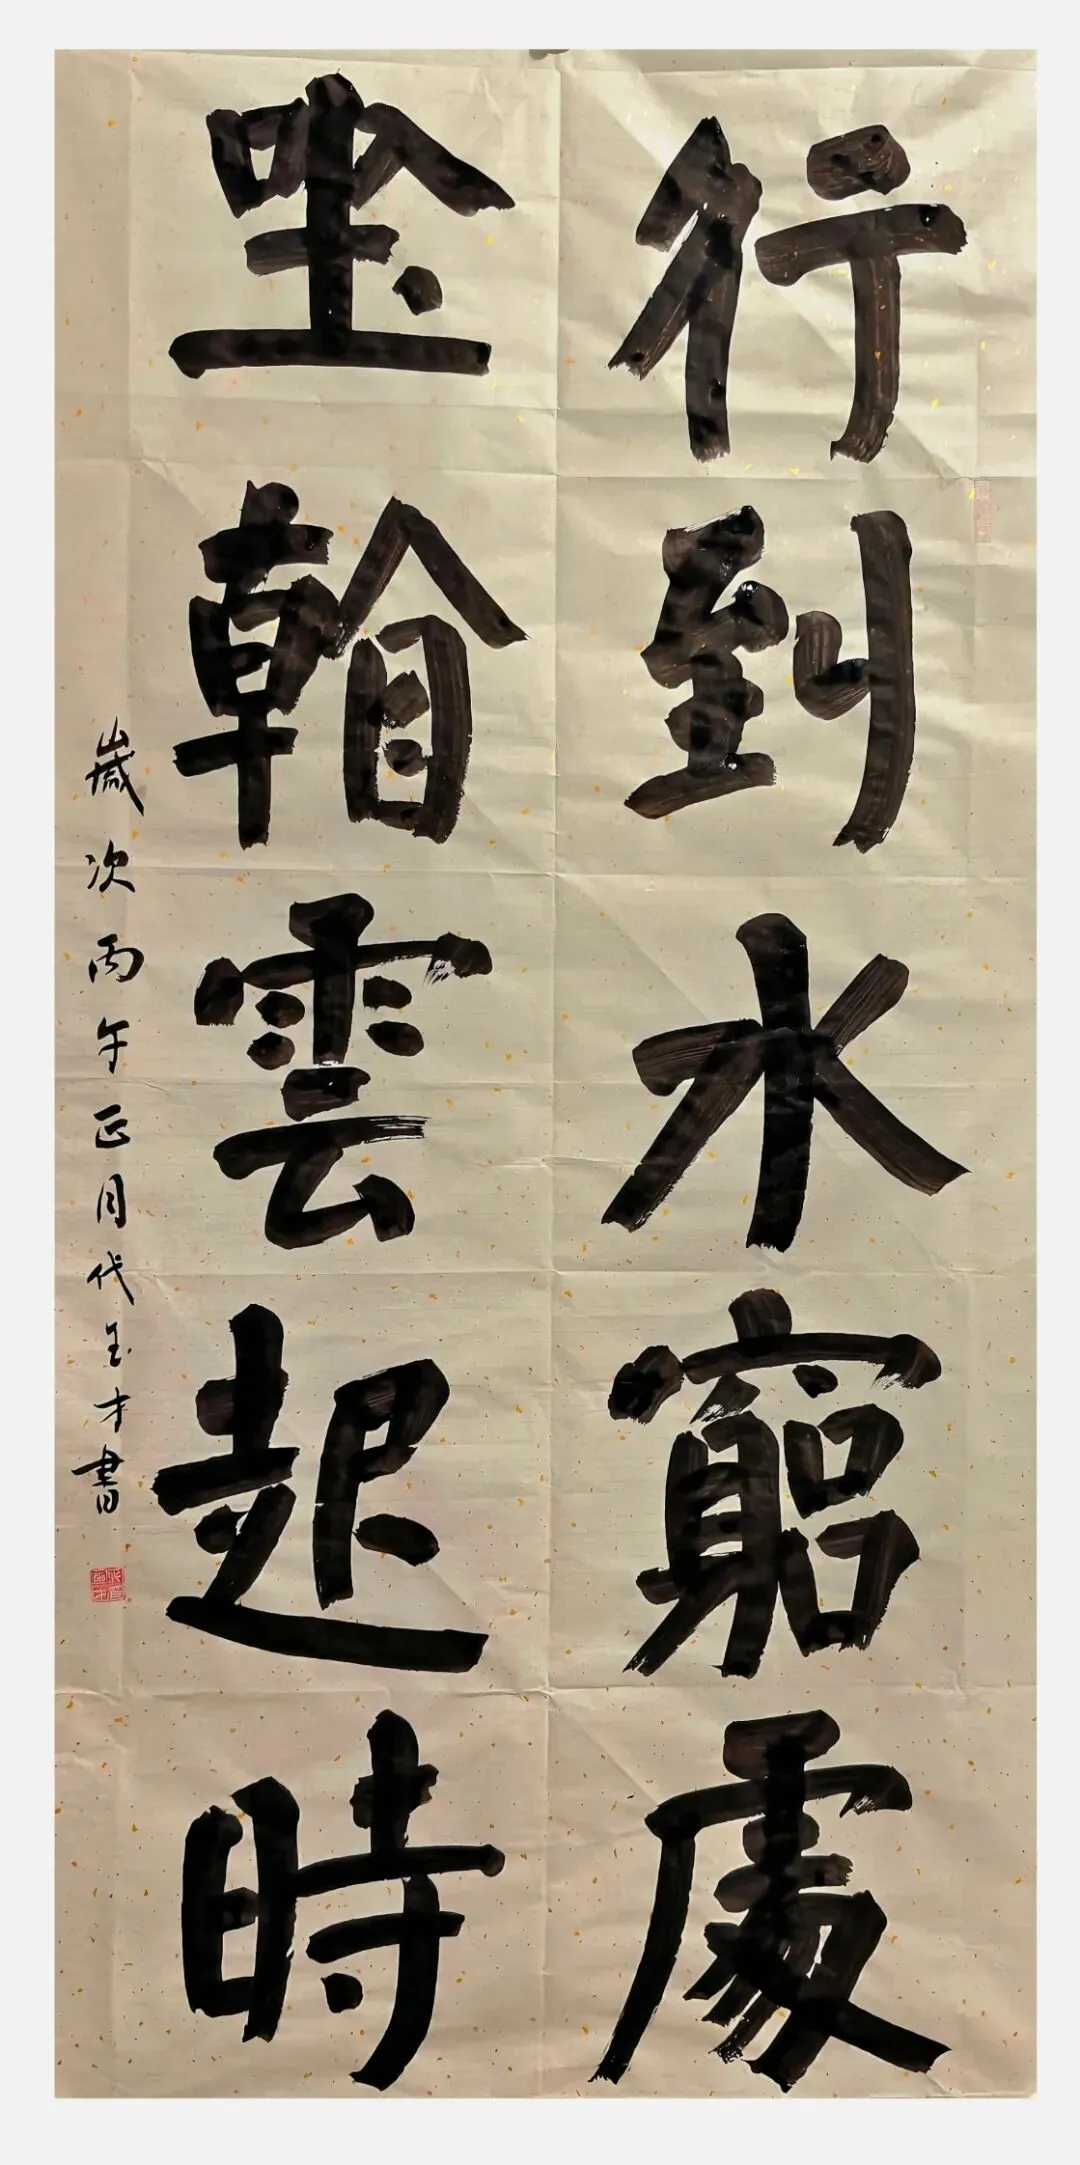 行到水窮處
坐看雲起時
歲次丙午正月代玉才書